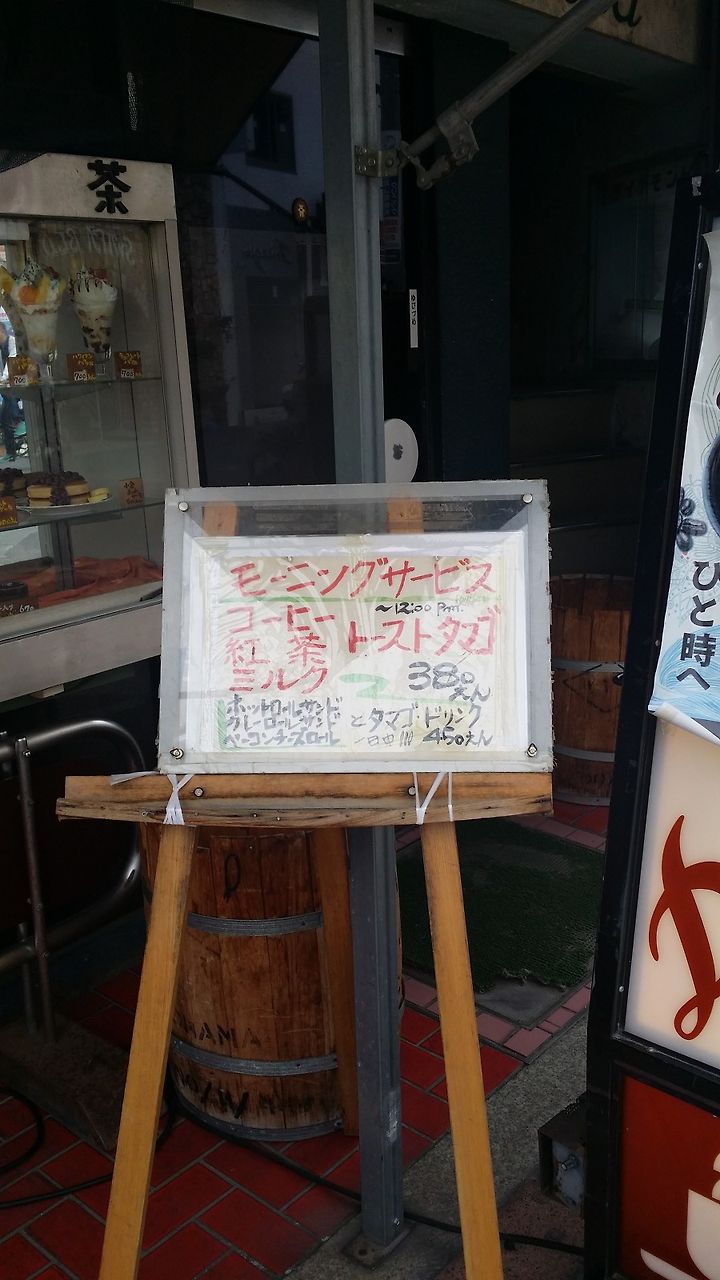 茶
700
700
700
ゆびづめ
モーニングサービス
~12:00 P.m.
コーヒー
紅茶
ミルク
トーストタマゴ
380えん
ホットロールサンド
カレーロールサンド
ベーコンチーズロール
とタマゴ・ドリンク
一日中!!! 450えん
ひと時へ